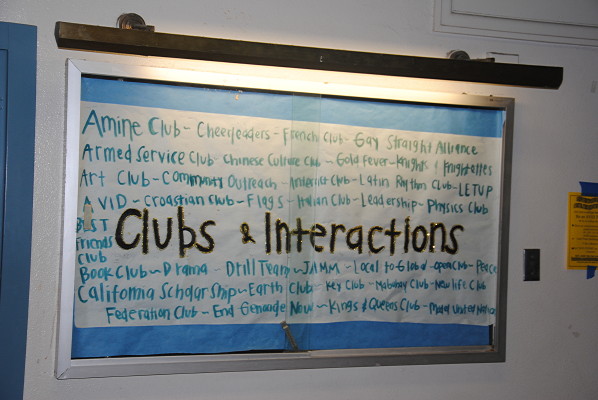 Amine Club - Cheerleaders - French Club - Gay Straight Alliance
Armed Service Club Chinese Culture Club - Gold Fever - Knights & Knightettes
Art Club - Community Outreach - Interact Club - Latin Rhythm Club - LETUP
AVID - Croatian Club - Flags - Italian Club - Leadership - Physics Club
BEST
Friends
Club
Clubs & Interactions
Book Club - Drama - Drill Team - JAMM - Local to Global - Club - Peace
California Scholarship - Earth Club - Key Club - Mabuhay Club - New life Club
Federation Club - End Genocide Now - Kings & Queens Club - Model United Nation